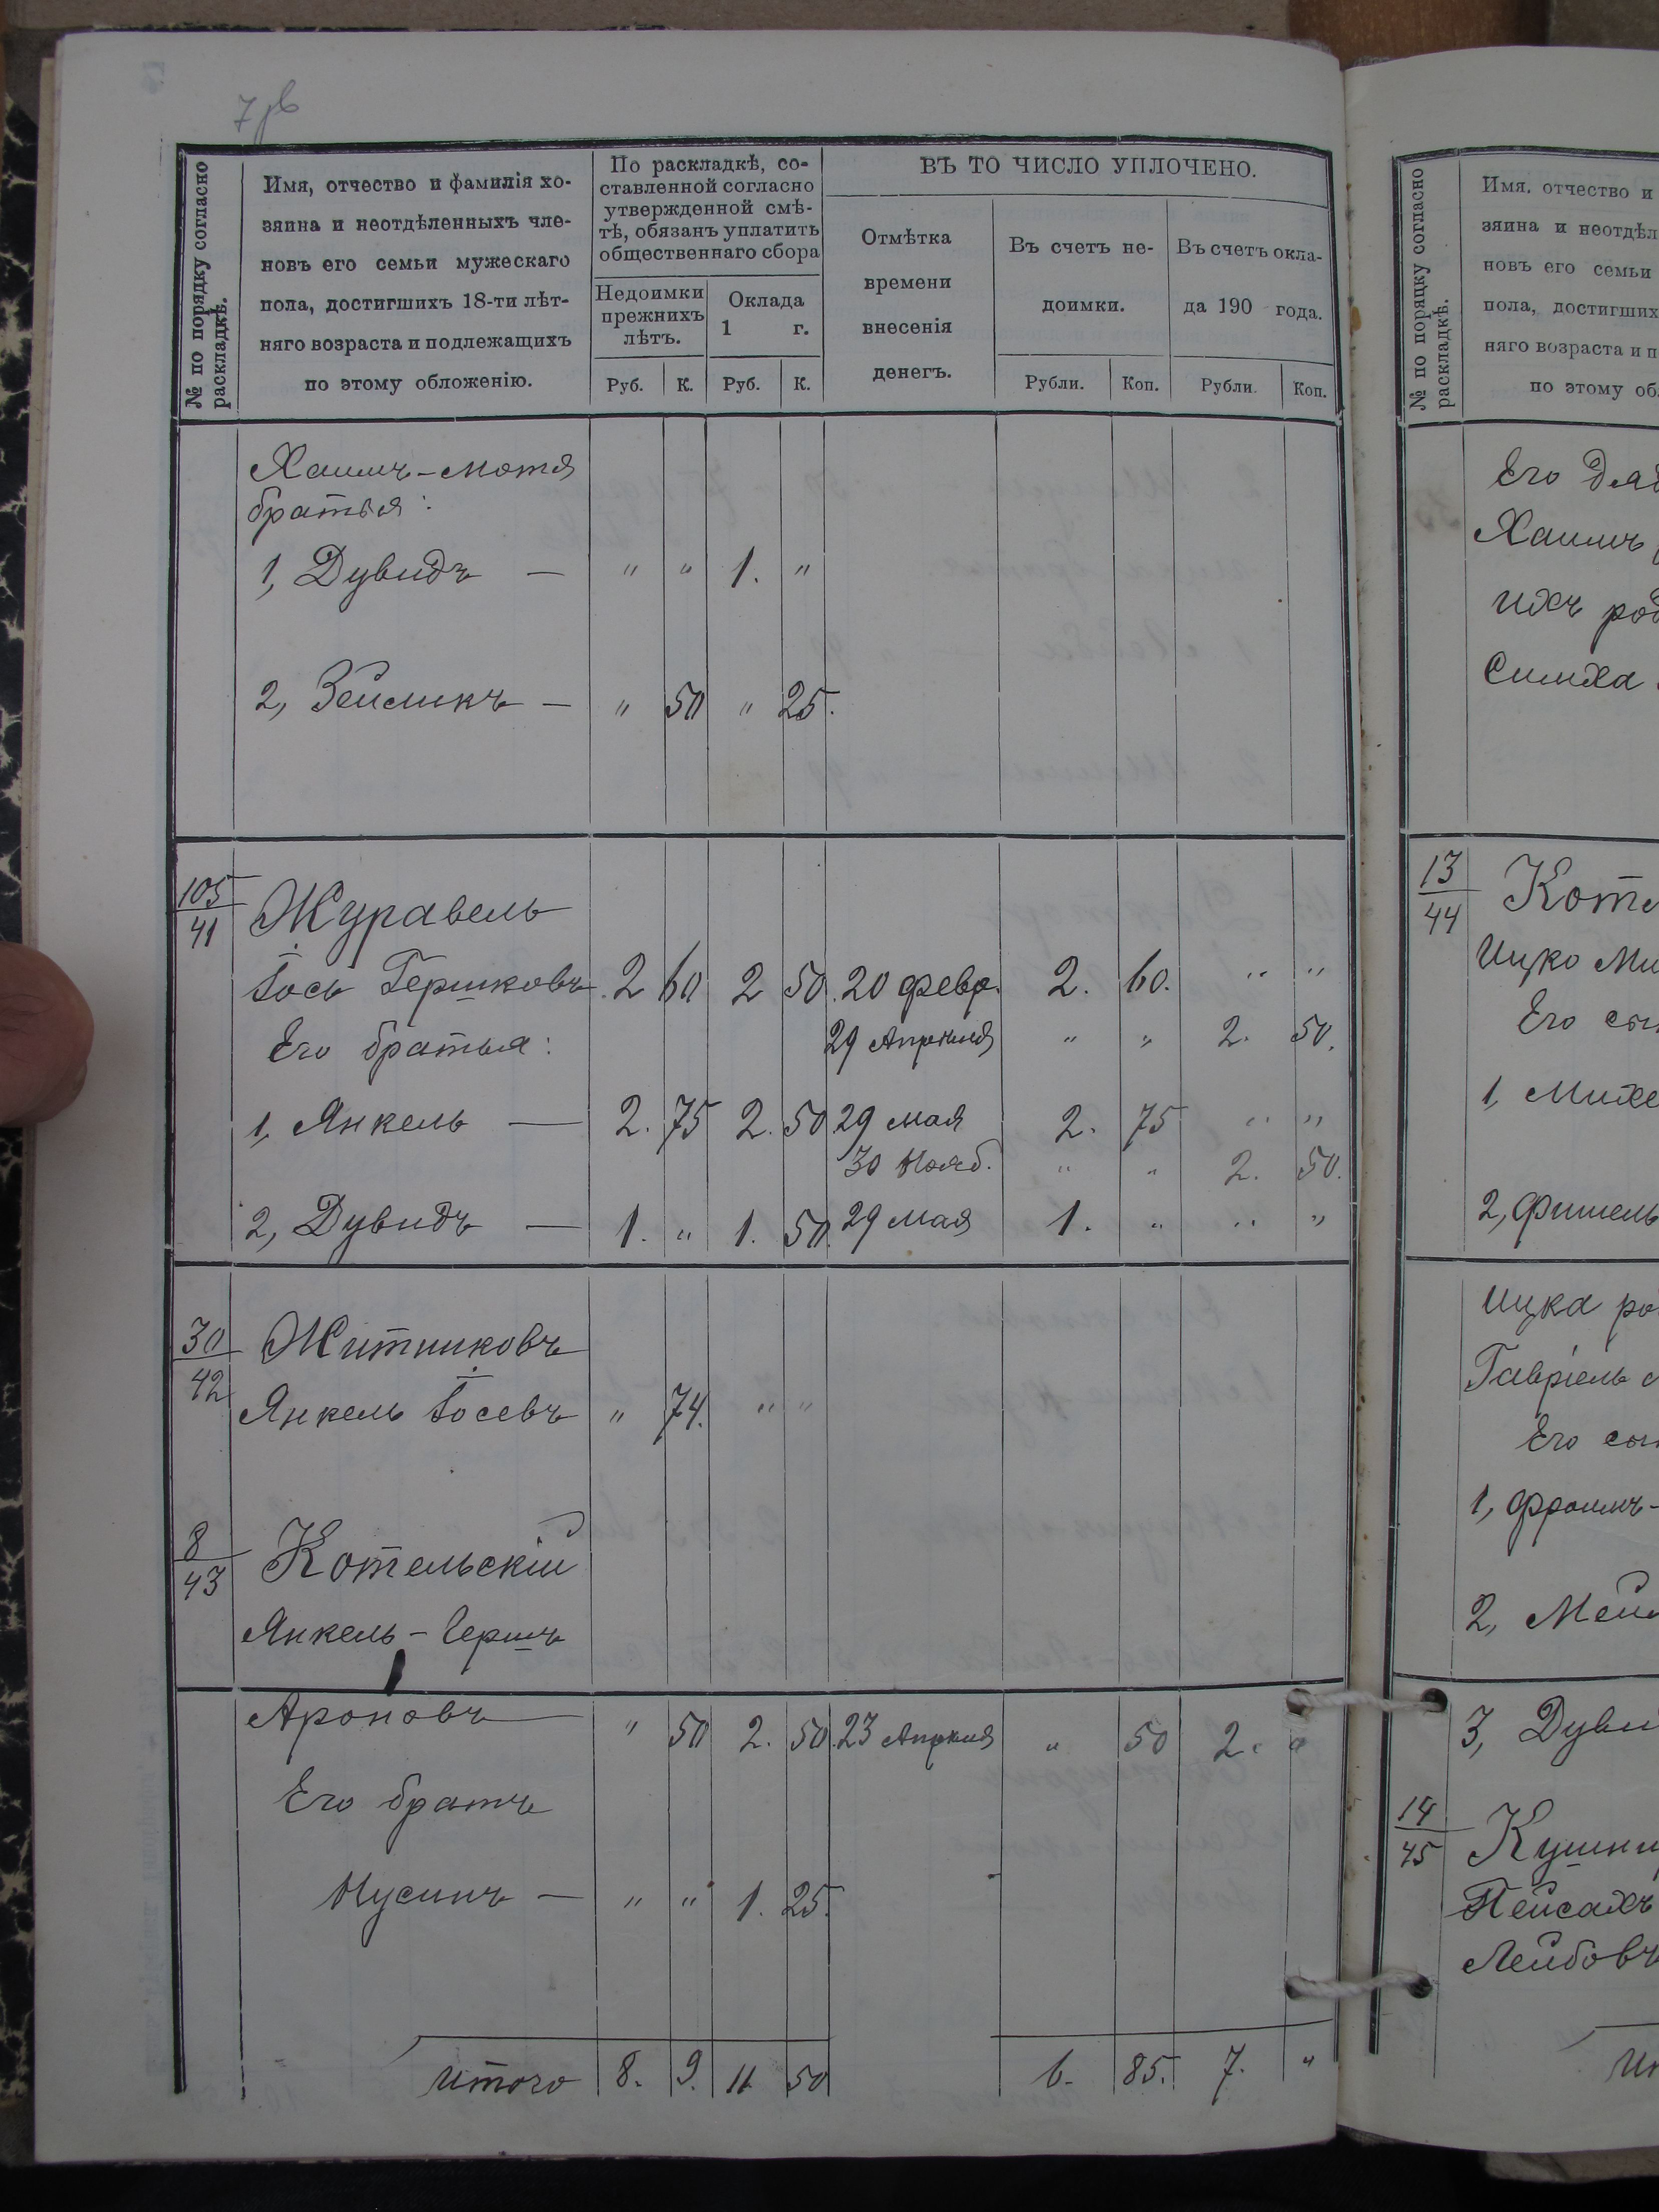 № по порядку согласно
раскладкѣ.
Имя, отчество и фамилія хо-
зяина и неотдѣленныхъ чле-
новъ его семьи мужескаго
пола, достигшихъ 18-ти лѣт-
няго возраста и подлежащихъ
по этому обложенію.
По раскладкѣ, со-
ставленной согласно
утвержденной смѣ-
тѣ, обязанъ уплатить
общественнаго сбора
Недоимки
прежнихъ
лѣтъ.
Оклада
1 г.
Руб. К. Руб. К.
ВЪ ТО ЧИСЛО УПЛОЧЕНО.
Отмѣтка
времени
внесенія
денегъ.
Въ счетъ не-
доимки.
Въ счетъ окла-
да 190 года.
Рубли. Коп. Рубли. Коп.
Хаимъ-Мотя
братья:
1, Дувидъ — " " 1. "
2, Зейликъ — " 50 " 25.
105/41 Журавель
Іось Гершковъ. 2 60 2 50. 20 февр. 2. 60. " "
Его братья: 29 Апрѣля " " 2. 50.
1, Янкель — 2. 75 2. 50 29 мая 2. 75 " "
30 Нояб. " " 2. 50.
2, Дувидъ — 1. " 1. 50. 29 Мая 1. " " "
30/42 Житниковъ
Янкель Іосевъ " 74. " "
8/43 Котельскій
Янкель-Гершъ
Ароновъ " 50 2. 50. 23 Апрѣля " 50 2. "
Его братъ
Нусинъ — " " 1. 25.
Итого 8. 9. 11. 50 6. 85. 7. "
№ по порядку согласно
раскладкѣ.
Имя. отчество и
зяина и неотдѣл
новъ его семьи
пола, достигших
няго возраста и п
по этому об
Его дяд
Хаимъ
ихъ род
Симха
13/44 Коте
Ицко Ми
Его сын
1, Михе
2, Фишель
Ицка ро
Гавріель
Его сын
1, Фроимъ-
2, Мей
3, Дуви
14/45 Кушни
Пейсахъ
Лейбовъ
Ит